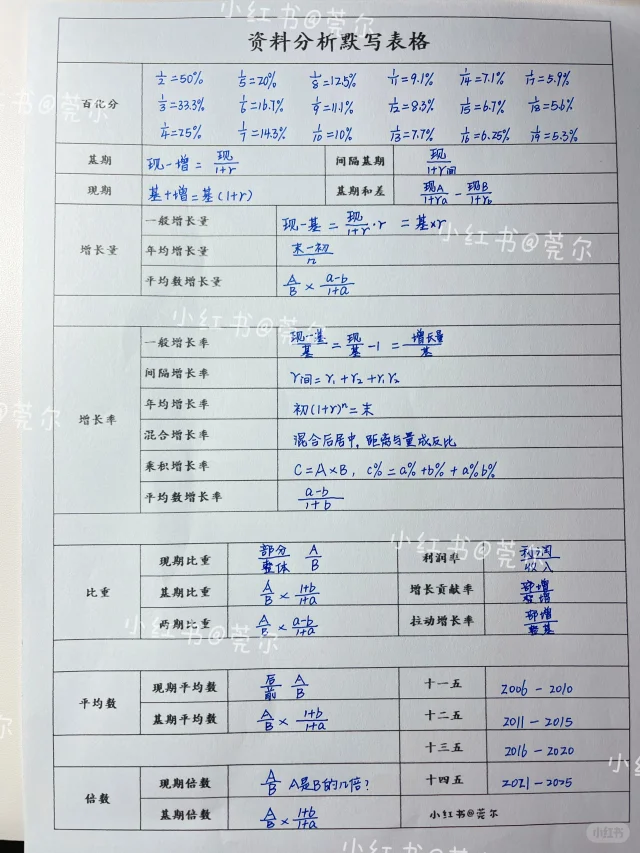 小红书@莞尔
资料分析默写表格
百化分
1/2=50% 1/5=20% 1/8=12.5% 1/11=9.1% 1/14=7.1% 1/17=5.9%
1/3=33.3% 1/6=16.7% 1/9=11.1% 1/12=8.3% 1/15=6.7% 1/18=5.6%
1/4=25% 1/7=14.3% 1/10=10% 1/13=7.7% 1/16=6.25% 1/19=5.3%
小红书@莞尔
基期 现-增=现/1+r 间隔基期 现/1+r间
现期 基+增=基(1+r) 基期和差 现A/1+ra - 现B/1+rb
增长量
一般增长量 现-基=现/1+r·r =基×r
小红书@莞尔
年均增长量 末-初/n
平均数增长量 A/B × a-b/1+a
小红书@莞尔
增长率
一般增长率 现-基/基=现/基-1=增长量/基
间隔增长率 r间=r₁+r₂+r₁r₂
年均增长率 初(1+r)ⁿ=末
莞尔
混合增长率 混合后居中,距离与量成反比
乘积增长率 C=A×B, c%=a%+b%+a%b%
平均数增长率 a-b/1+b
小红书@莞尔
比重
现期比重 部分/整体 A/B 利润率 利润/收入
基期比重 A/B × 1+b/1+a 增长贡献率 部增/整增
两期比重 A/B × a-b/1+a 拉动增长率 部增/整基
小红书@莞尔
平均数
现期平均数 后/前 A/B 十一五 2006-2010
基期平均数 A/B × 1+b/1+a 十二五 2011-2015
十三五 2016-2020
小红书
倍数
现期倍数 A/B A是B的几倍? 十四五 2021-2025
基期倍数 A/B × 1+b/1+a 小红书@莞尔
小红书
小红书@莞尔